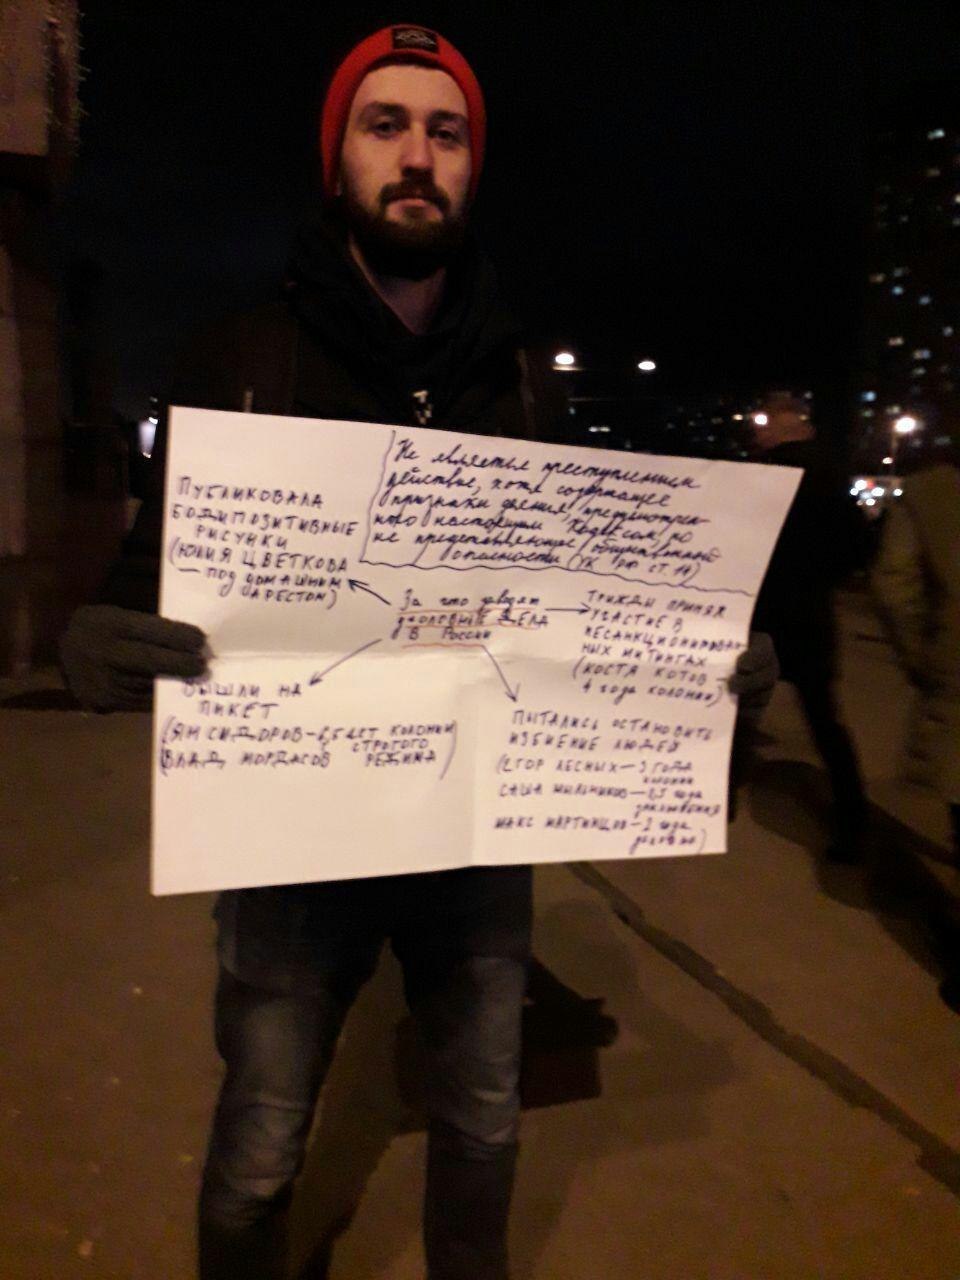 Не является преступлением
действие, хотя содержащее
признаки деяния, предусмотрен-
ного настоящим Кодексом, но
не представляющее общественной
опасности (УК РФ ст. 14)
ПУБЛИКОВАЛА
БОДИПОЗИТИВНЫЕ
РИСУНКИ
(ЮЛИЯ ЦВЕТКОВА
— ПОД ДОМАШНИМ
АРЕСТОМ)
За что заводят
уголовные ДЕЛА
В России
ТРИЖДЫ ПРИНЯЛ
УЧАСТИЕ В
НЕСАНКЦИОНИРОВАН
НЫХ МИТИНГАХ
(КОСТЯ КОТОВ —
4 года колонии)
ВЫШЛИ НА
ПИКЕТ
(ЯН СИДОРОВ - 6,5 ЛЕТ КОЛОНИИ
ВЛАД МОРДАСОВ СТРОГОГО
РЕЖИМА)
ПЫТАЛИСЬ ОСТАНОВИТЬ
ИЗБИЕНИЕ ЛЮДЕЙ
(ЕГОР ЛЕСНЫХ — 3 ГОДА
КОЛОНИИ
САША МЫЛЬНИКОВ — года
МАКС МАРТИНЦОВ — года